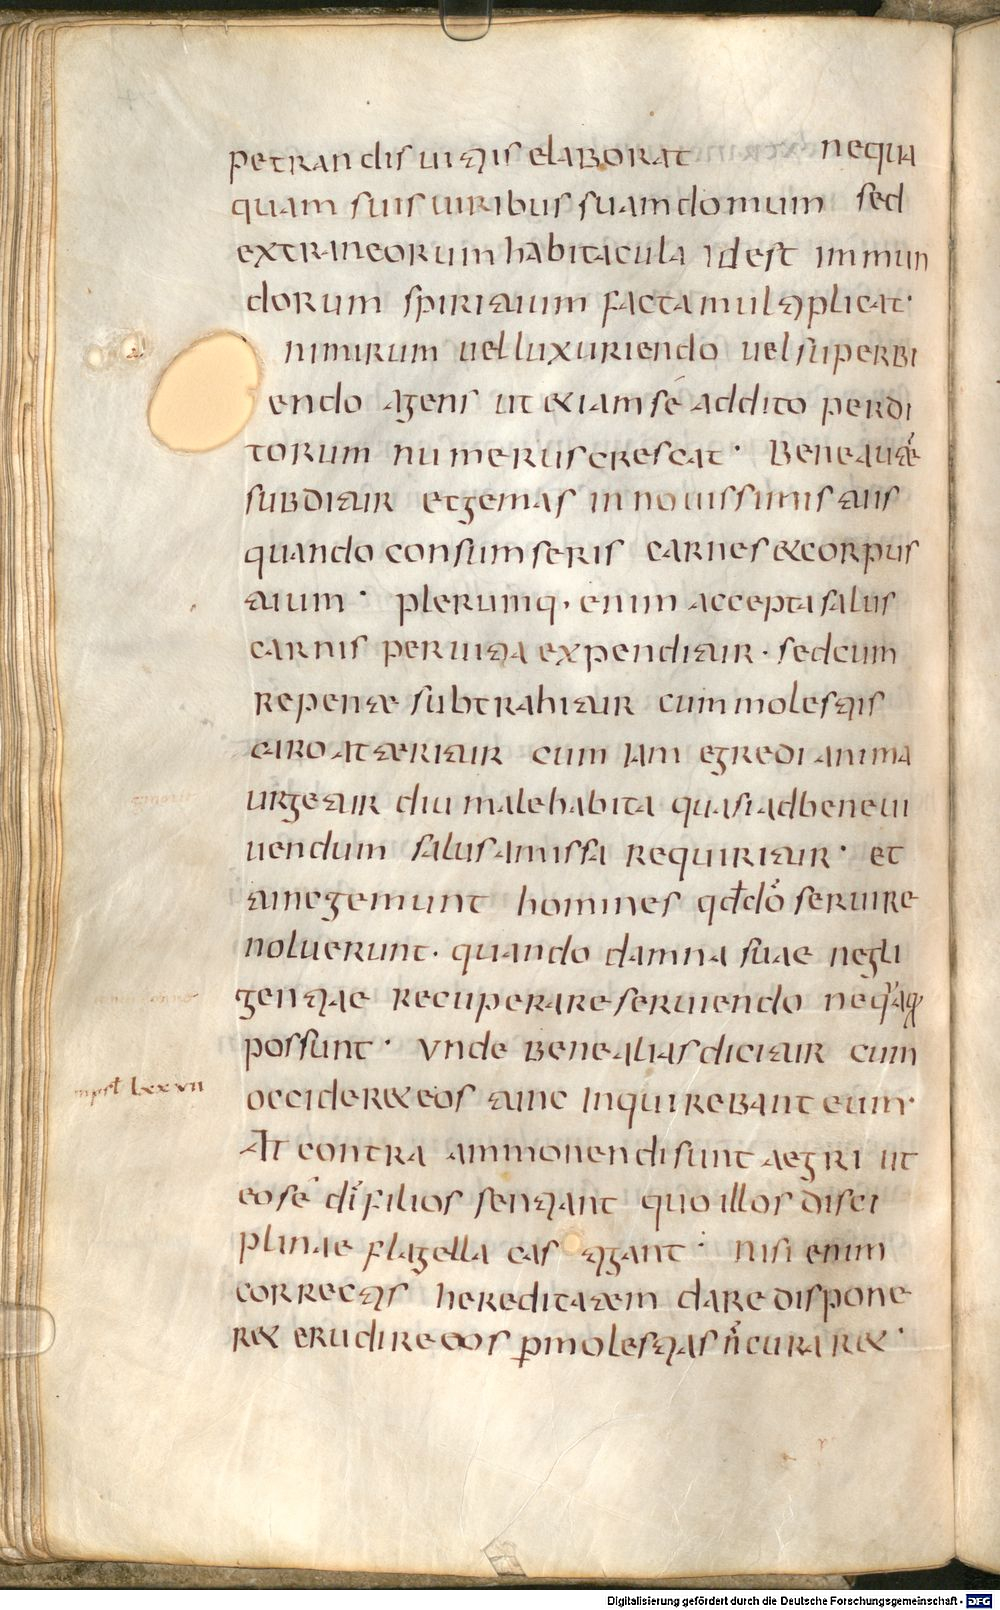 petrandis uitiis elaborat nequa
quam suis uiribus suam domum sed
extraneorum habitacula idest immun
dorum spirituum facta multiplicat·
nimirum uel luxuriendo uel superbi
endo agens ut etiam se addito perdi
torum numerus crescat· Bene autē
subditur et gemas in nouissimis tuis
quando consumseris carnes et corpus
tuum· plerumq· enim accepta salus
carnis per uitia expenditur· sed cum
repente subtrahitur cum molestiis
caro atteritur cum iam egredi anima
urgetur diu male habita quasi ad bene ui
uendum salus amissa requiritur· et
tunc gemunt homines qđ dō seruire
noluerunt· quando damna suae negli
gentiae recuperare seruiendo nequaq
possunt· Vnde bene alias dicitur cum
In psł Lxxvii
occideret eos tunc inquirebant eum·
At contra ammonendi sunt aegri ut
eo sē dī filios sentiant quo illos disci
plinae flagella castigant· nisi enim
correctis hereditatem dare dispone
ret erudire eos p molestias ñ curaret·
Digitalisierung gefördert durch die Deutsche Forschungsgemeinschaft - DFG